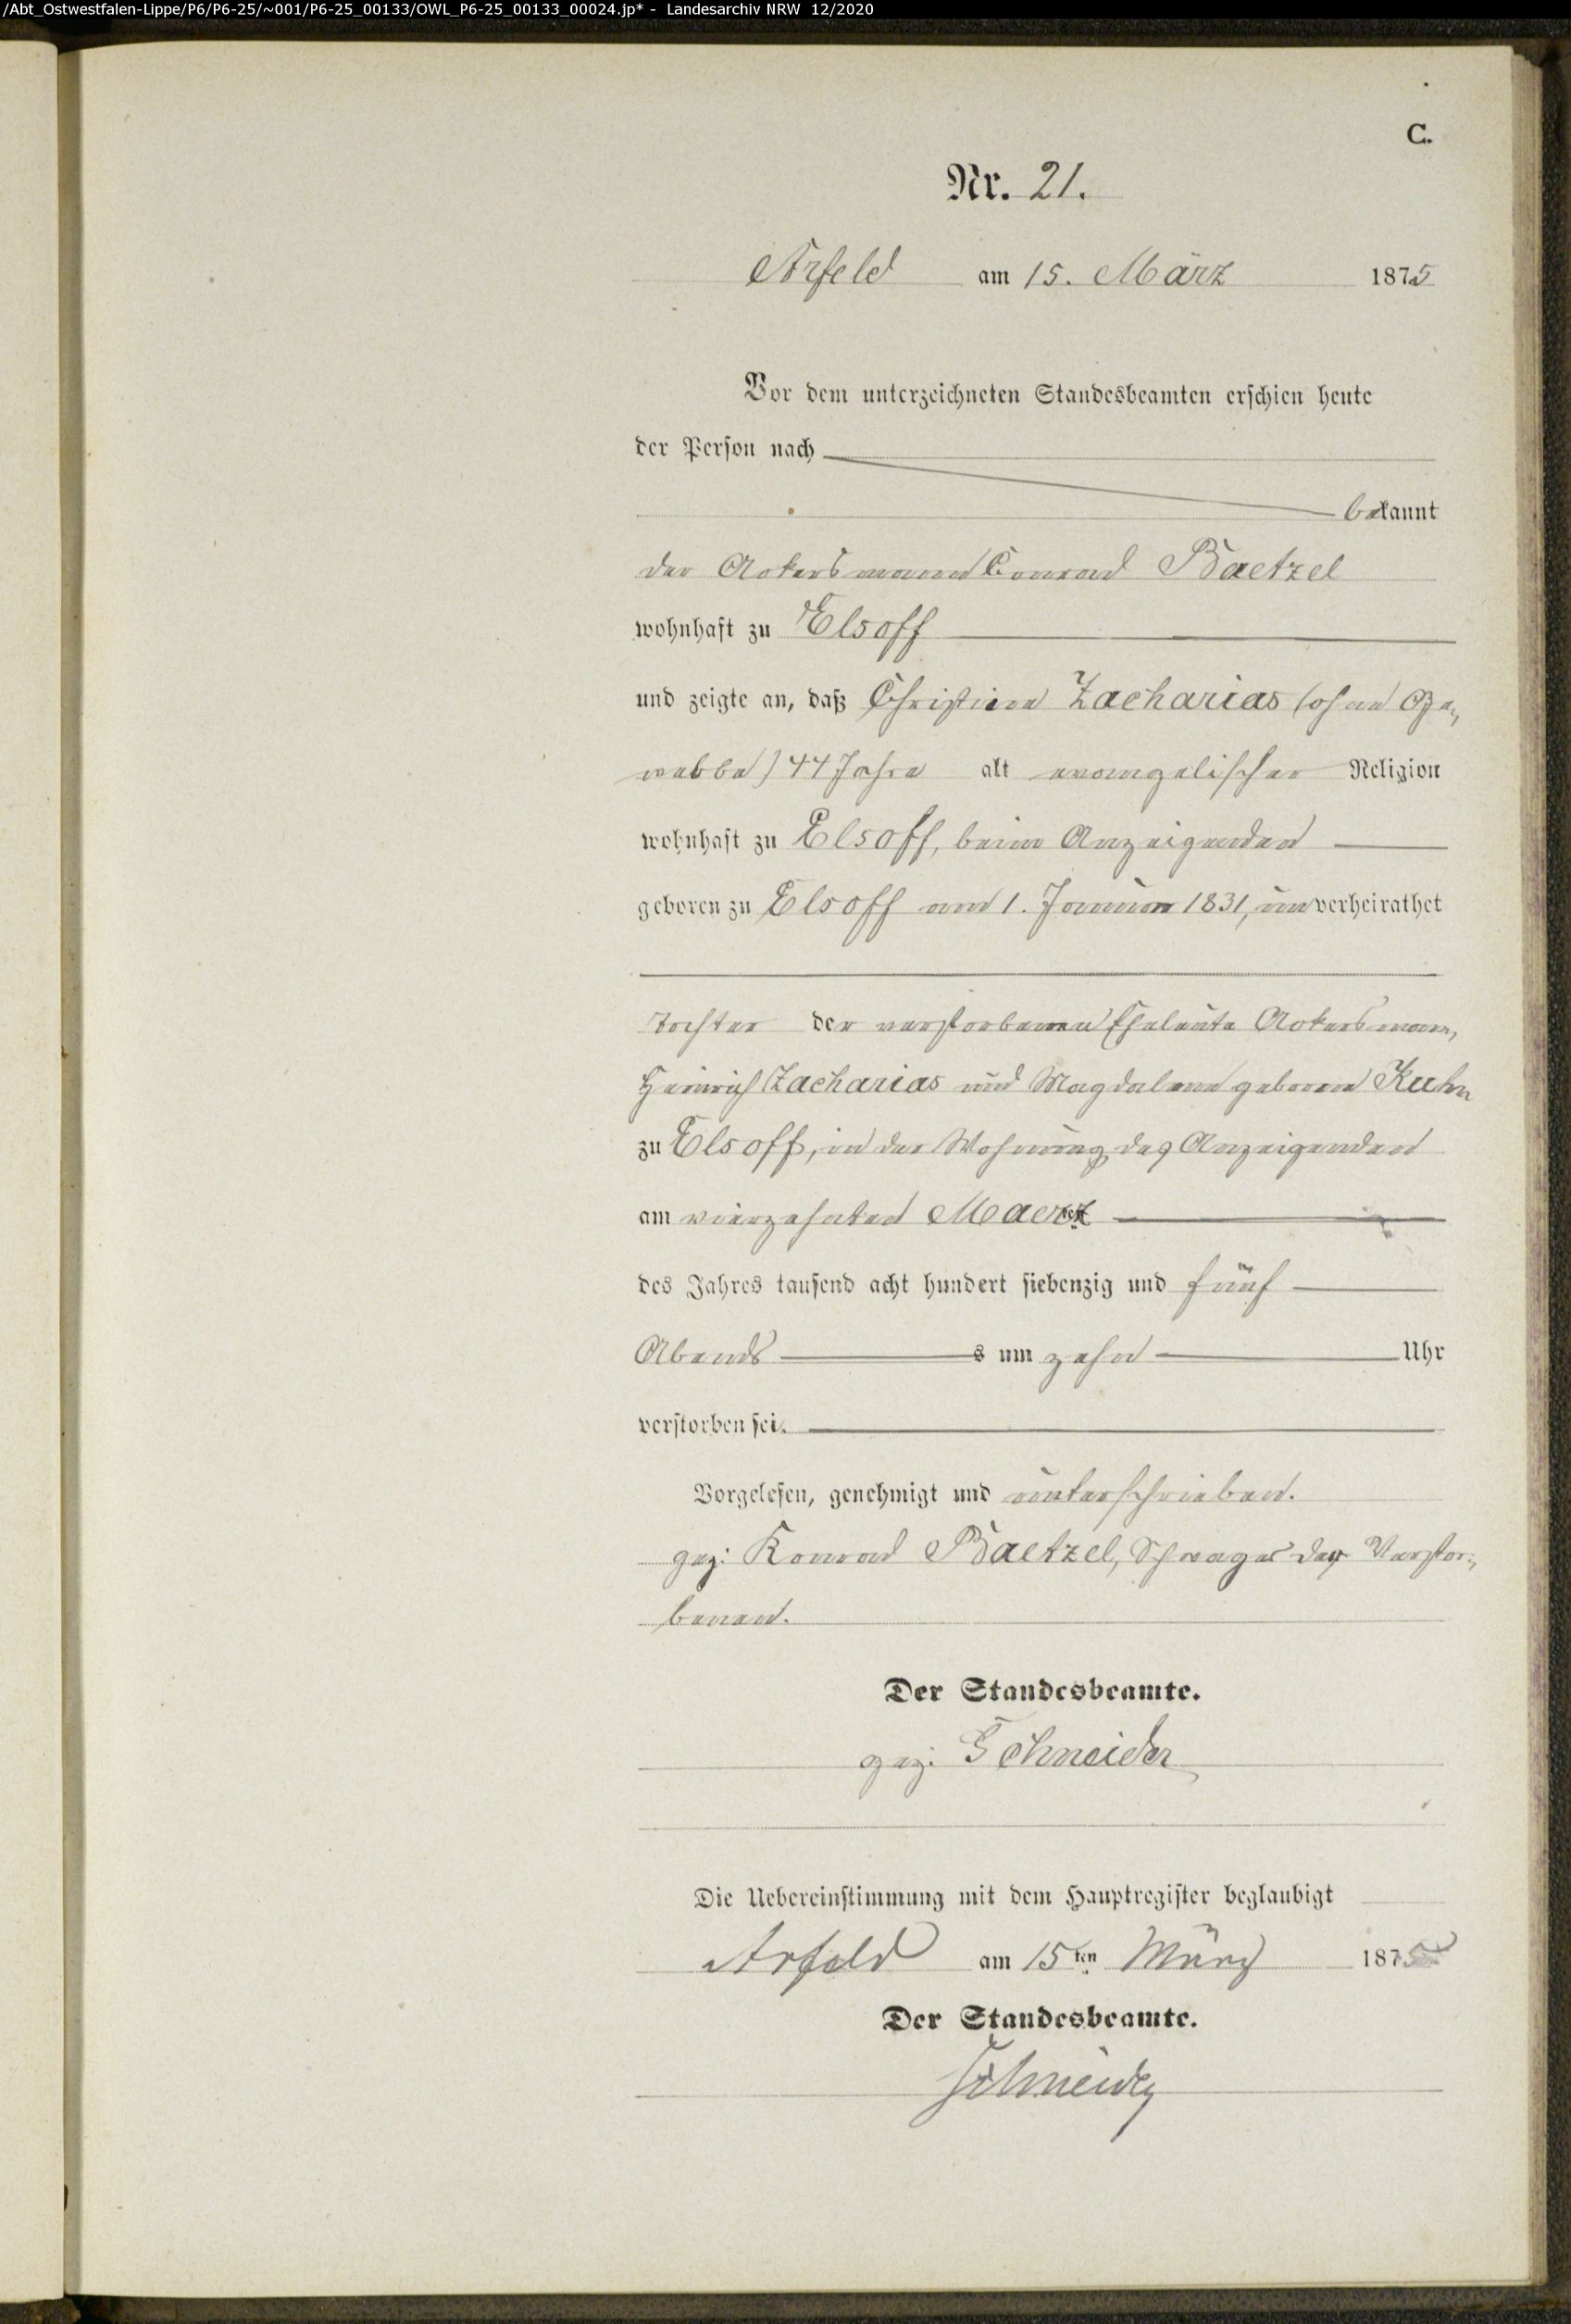 /Abt_Ostwestfalen-Lippe/P6/P6-25/~001/P6-25_00133/OWL_P6-25_00133_00024.jp* - Landesarchiv NRW 12/2020
C.
Nr. 21.
Arfeld am 15. März 1875
Vor dem unterzeichneten Standesbeamten erschien heute
der Person nach
bekannt
der Ackersmann Conrad Baetzel
wohnhaft zu Elsoff
und zeigte an, daß Christine Zacharias (ohne Ge-
werbe) 44 Jahre alt evangelischer Religion
wohnhaft zu Elsoff, beim Anzeigenden
geboren zu Elsoff am 1. Januar 1831, unverheirathet
Tochter der verstorbenen Eheleute Ackersmann,
Heinrich Zacharias und Magdalene geborene Kuhn
zu Elsoff, in der Wohnung des Anzeigenden
am vierzehnten Maerz
des Jahres tausend acht hundert siebenzig und fünf
Abends s um zehn Uhr
verstorben sei.
Vorgelesen, genehmigt und unterschrieben.
gez: Konrad Baetzel, Schwager der Verstor-
benen.
Der Standesbeamte.
gez: Schneider
Die Uebereinstimmung mit dem Hauptregister beglaubigt
Arfeld am 15ten März 1875
Der Standesbeamte.
Schneider